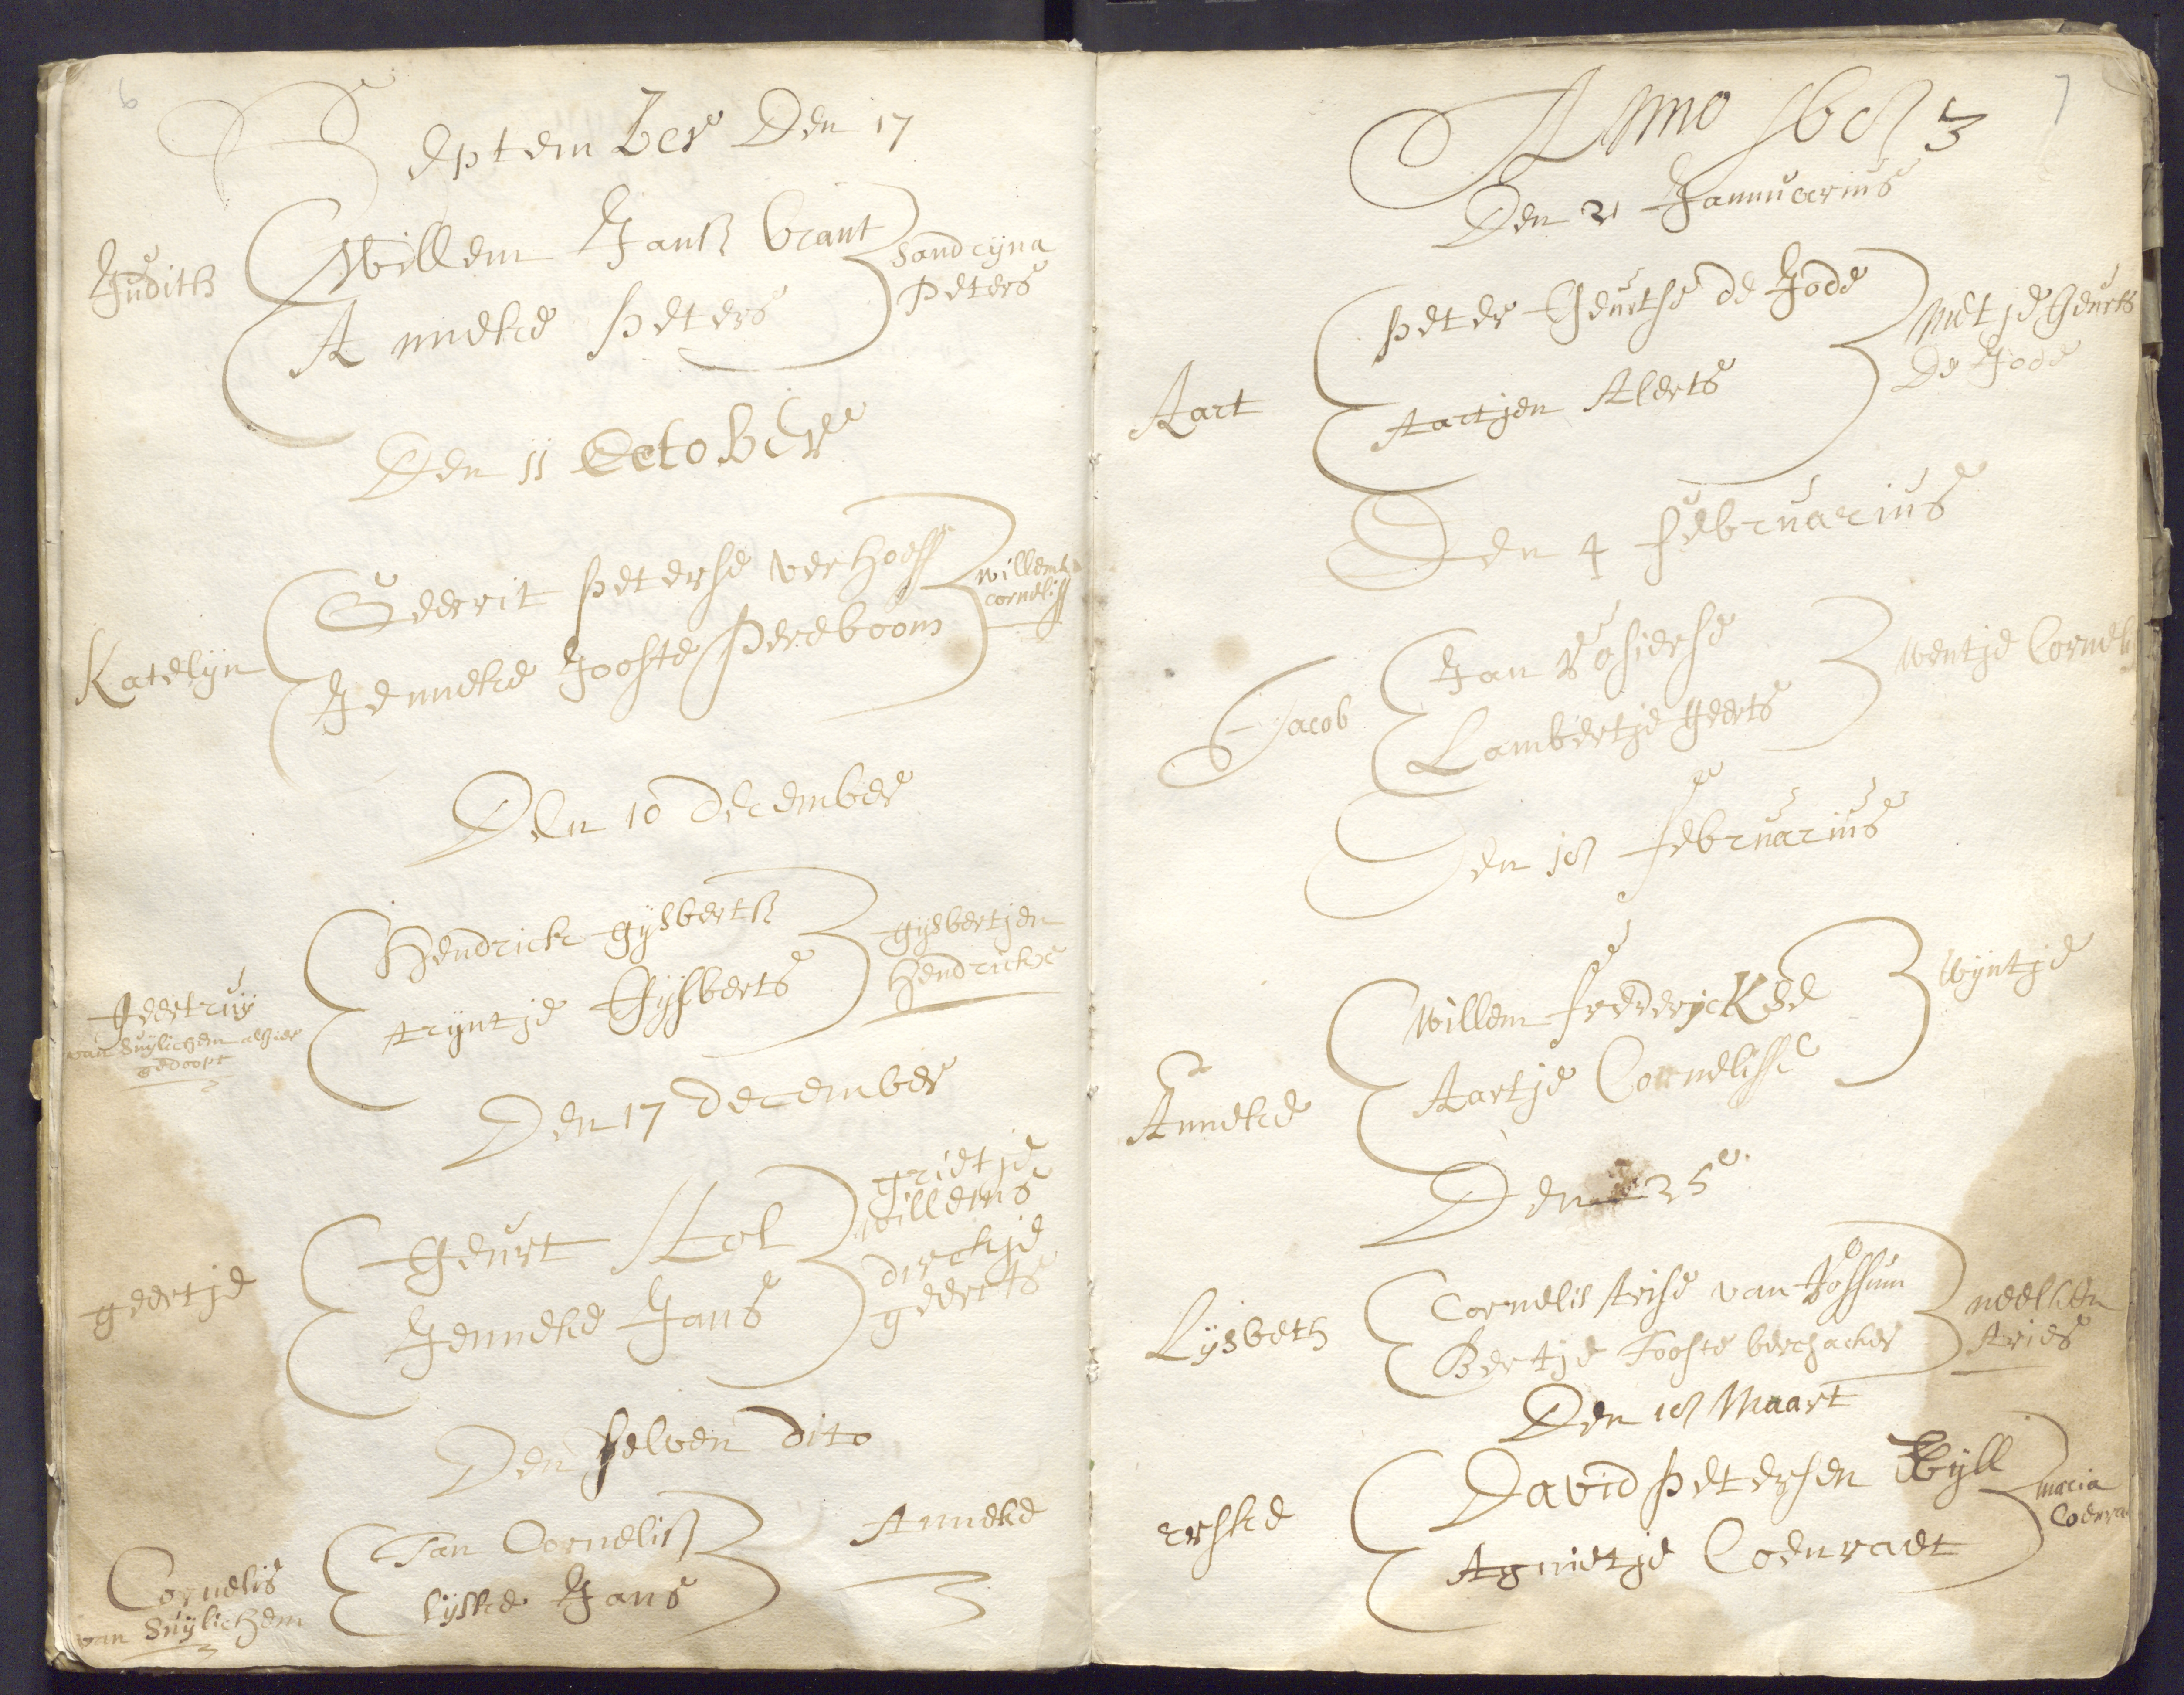 6
September Den 17
Judith
Willem Janß brant
Anneke Peters
Sandrijna
Peters
Den 11 October
Katelijn
Geerit Peterse verhoeff
Jenneke Jooste Pereboom
willemke
corneliss
Den 10 December
Geertruij
van Suijlichem alhier
gedoopt
Hendrick gijsbertß
trijntje Gijsberts
gijsbertjen
Hendrickse
Den 17 December
geertje
Geurt Stol
Jenneke Jans
grietje
willems
dirckje
geerts
Den selven dito
Cornelis
van Suijlichem
Jan Cornelisß
lijske Jans
Anneke
7
Anno 1683
Den 21 Jannuarius
Aart
Peter Geurtse de Jode
Aartjen Alerts
Metje Geurts
De Jode
Den 4 februarius
Jacob
Jan Rosierse
Lambertje Geerts
Wentje Cornel
Den 18 februarius
Anneke
Willem frederyckse
Aartje Cornelisse
Wijntje
Den 25
Lijsbeth
Cornelis Arise van Rossum
Bertje Jooste berchacker
neelken
Aries
Den 18 Maart
erske
David Petersen Bijll
Agnietje Coenraet
maria
Coenra